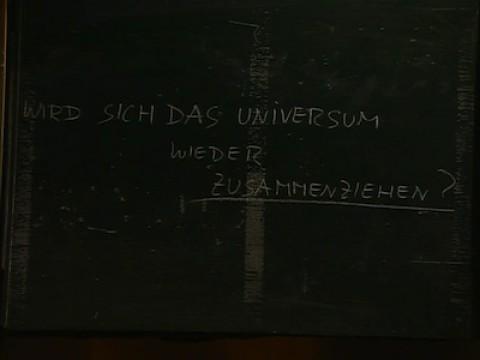 WIRD SICH DAS UNIVERSUM
WIEDER
ZUSAMMENZIEHEN?